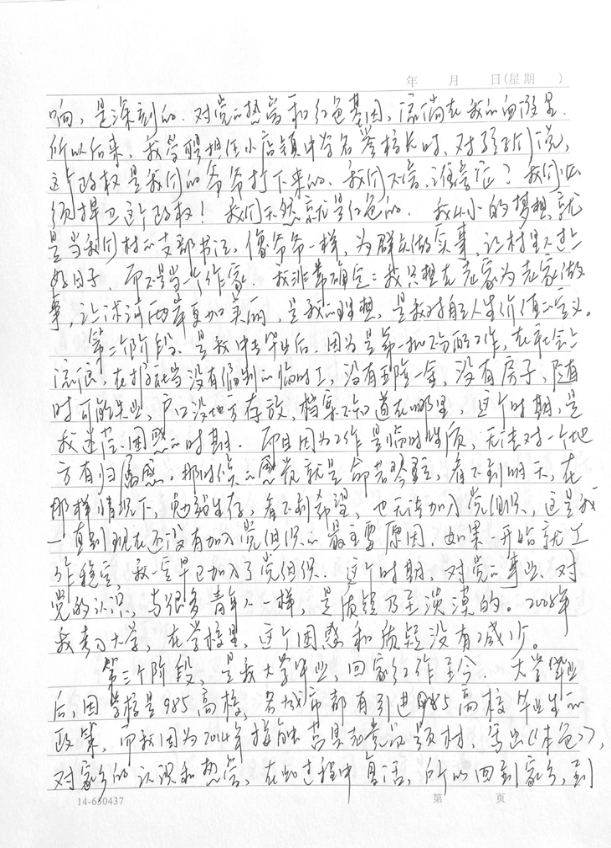 年 月 日(星期 )
响,是深刻的.对党的热爱和红色基因,流淌在我的血液里.
所以后来,我受聘担任小店镇中学名誉校长时,对孩子们说,
这个政权是我们的爷爷打下来的,我们不信,谁信?我们必
须捍卫这个政权!我们天然就是红色的.我从小的梦想,就
是当我们村的支部书记,像爷爷一样,为群众做实事,让村里人过上
好日子,而不是当一个作家.我非常确定:我只想在老家为老家做
事,让沭河两岸更加美丽,是我的理想,是我对自己人生价值的定义。
第二个阶段,是我中专毕业后.因为是第一批不分配工作,在社会上
流浪,在报社当没有编制的临时工,没有五险一金,没有房子,随
时可能失业,户口没地方存放,档案不知道在哪里,这个时期,是
我迷茫、困惑的时期.而且因为工作是临时性质,无法对一个地
方有归属感,那时候的感觉就是命若琴弦,看不到明天,在
那样情况下,勉强生存,看不到希望,也无法加入党组织,这是我
一直到现在还没有加入党组织的最主要原因.如果一开始就工
作稳定,我一定早已加入了党组织.这个时期,对党的事业、对
党的认识,与很多青年人一样,是质疑乃至淡漠的。2008年
我考了大学,在学校里,这个困惑和质疑没有减少。
第三个阶段,是我大学毕业,回家红作至今.大学毕业
后,因学校是985高校,各城市都有引进985高校毕业生的
政策,而我因为2014年接触莒县老党员题材,写出《本色》,
对家乡的认识和热爱,在此过程中复活,所以回到家乡,到
14-650437 第 页